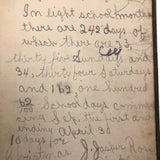 In eight school months
there are 248 days of
which there are 35,
thirty five Sundays and
34, thirty four Saturdays
and 162 one hundred
62 School days commen
cing Sep. the first and
ending April 30
10 days for
J. Jasper